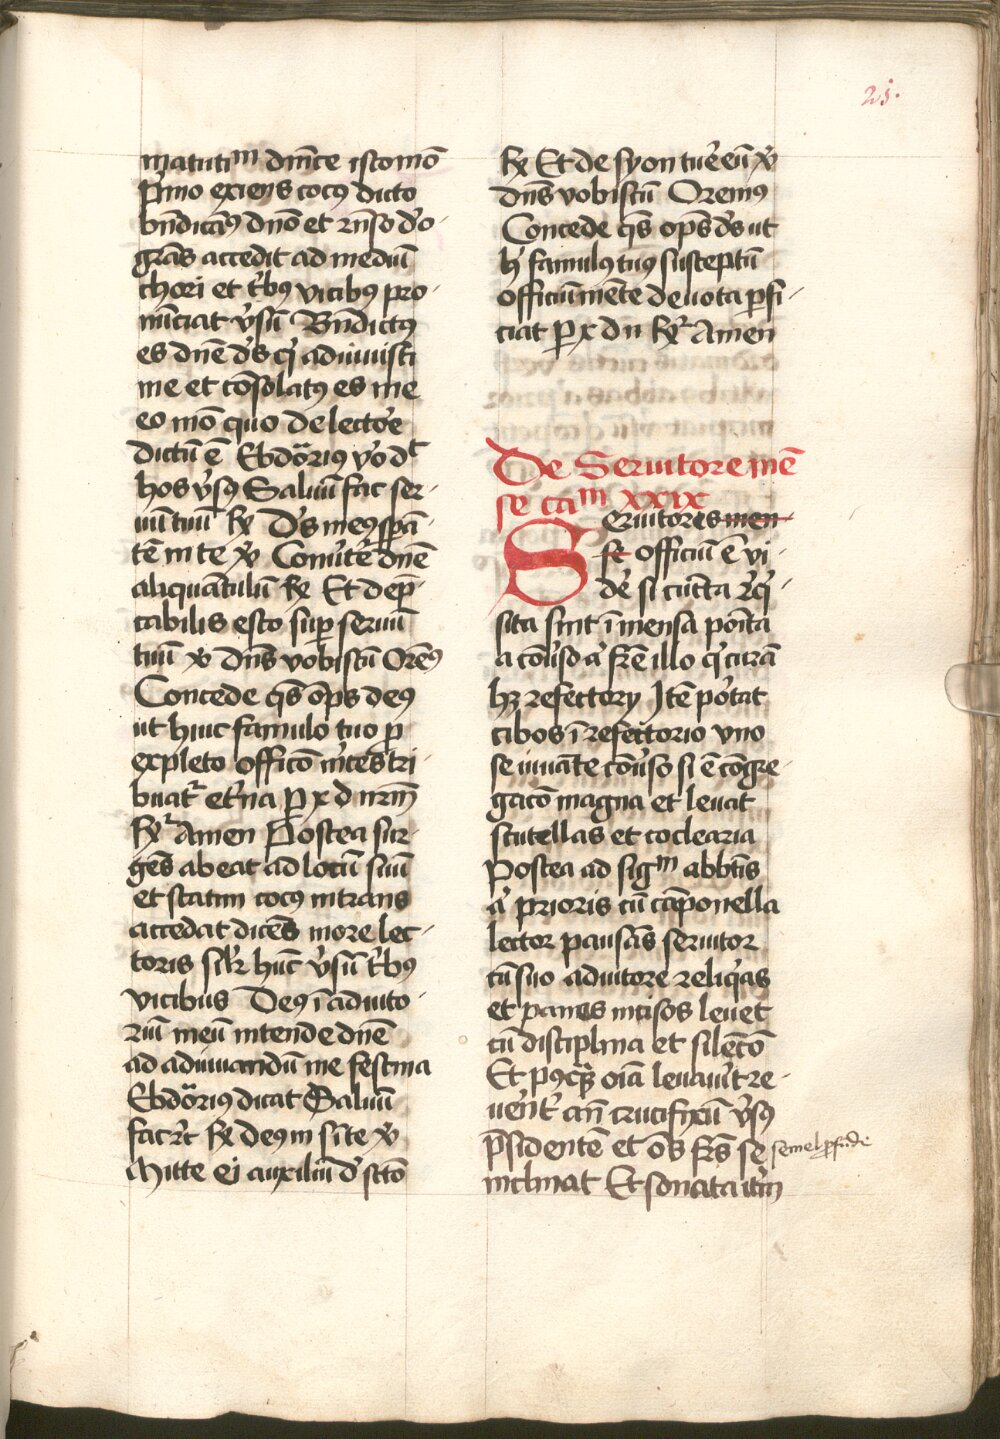 25.
matuti^m dn̄ice isto mō
P̄mo exiens cocꝰ dicto
bn̄dicamꝰ dnō et rn̄so do
grās accedit ad mediū
chori et t͛bꝰ vicibꝰ pro-
nūciat v̓sū Bn̄dictꝰ
es dnē ds̄ q̄ adiuuisti
me et cōsolatꝰ es me
eo mō quo de lecto͛e
dictū ē Ebdōriꝰ vo dt̄
hos v̓sꝰ Saluū fac ser-
uū tuū ℞ Ds̄ meꝰ spā-
tē in te ℣ Conu̓te dnē
aliquātulū ℞ Et dep̄-
cabilis esto suꝑ seruū
tuū ℣ Dn̄s vobiscū Orēꝰ
Concede q̄s ōps deꝰ
ut huic famulo tuo ꝑ
expleto officō m̓ces t͛i-
buat͛ et͛na ꝑ x d nrm̄
℞ Amen Postea sur-
gēs abeat ad locū suū
et statim cocꝰ intrans
accedat dicēs more lec-
toris sil͛r hūc v̓sū t͛bꝰ
vicibus Deꝰ ī adiuto-
riū meū intende dnē
ad adiuuandū me festina
Ebdōriꝰ dicat Saluū
fac ⁊c̄ ℞ deꝰ m sp̄ite ℣
Mitte ei auxiliū d̓ sctō
℞ Et de syon tue͛ eū ℣
dn̄s vobiscū Oremꝰ
Concede q̄s ōps ds̄ ut
h̓ famulꝰ tuꝰ susceptū
officiū mēte deuota ꝑfi-
ciat ꝑ x d n ℞ Amen
De Seruitore mē
se ca^m xxix
Seruitores men-
se officiū ē vi-
de͛ si cūcta ⁊q̓-
sita sint ī mensa poīta
a cōu̓so a͛ frē illo q̓ curā
hꝫ refectory Itē po͛tat
cibos ī refectorio vno
se iuuāte cōu̓so si ē cōgre-
gacō magna et leuat
scutellas et coclearia
Postea ad sig^m abbtīs
a͛ prioris cū cāponella
lector pausās seruitor
cū suo adiutore reliq̓as
et panes incisos leuet
cū disciplina et silētō
Et pꝰq̄ oīa leuau̓it re-
uen͛t᷑ an̄ crucifixū v̓sꝰ
p̄sidentē et ōs frēs se semel ꝓfūde
inclinat Et sonata it͛m